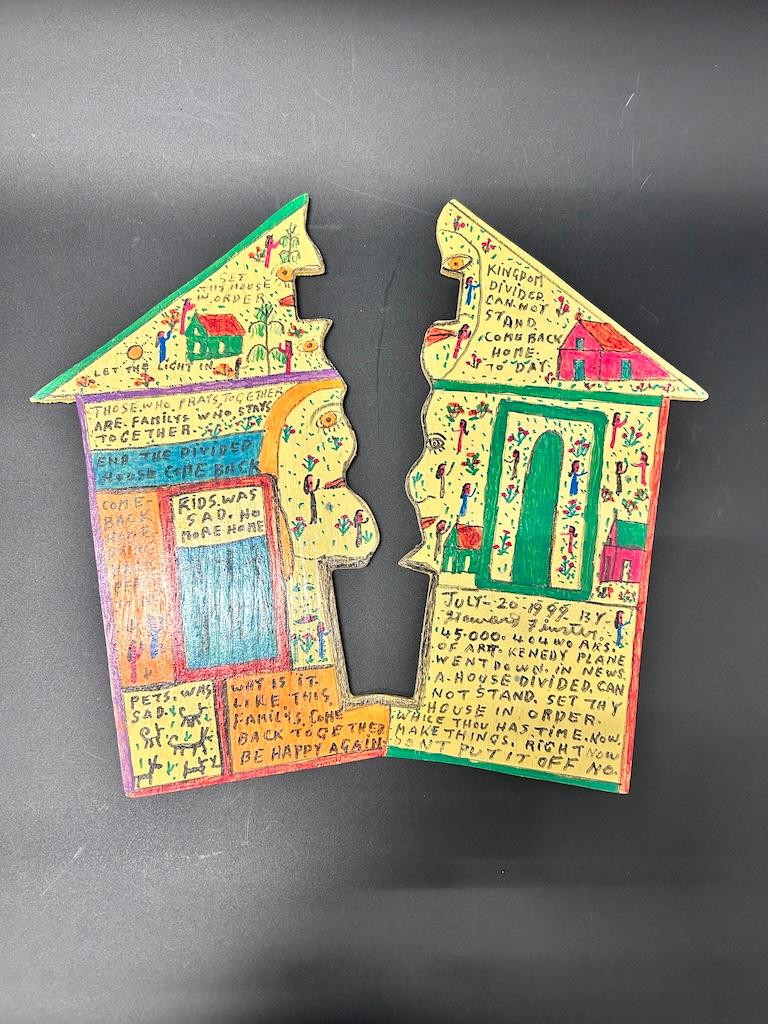 SET
THY HOUSE
IN. ORDER
LET THE LIGHT IN
THOSE. WHO. PRAYS TOGETHER
ARE. FAMILYS WHO STAYS
TOGETHER.
END THE DIVIDED
HOUSE COME BACK
COME-
BACK
KIDS. WAS
SAD. NO
MORE HOME
PETS. WAS
SAD.
WHY IS IT.
LIKE THIS
FAMILYS. COME
BACK TOGETHER
BE HAPPY AGAIN.
KINGDOM
DIVIDED
CAN. NOT
STAND.
COME BACK
HOME.
TO DAY.
JULY-20-1999 BY.
Howard Finster.
45.000.404 WORKS.
OF ART. KENEDY PLANE
WENT DOWN. IN NEWS.
A. HOUSE DIVIDED, CAN
NOT STAND. SET THY
HOUSE IN ORDER.
WHILE THOU HAS. TIME. NOW.
MAKE THINGS, RIGHT NOW
DONT PUT IT OFF NO.